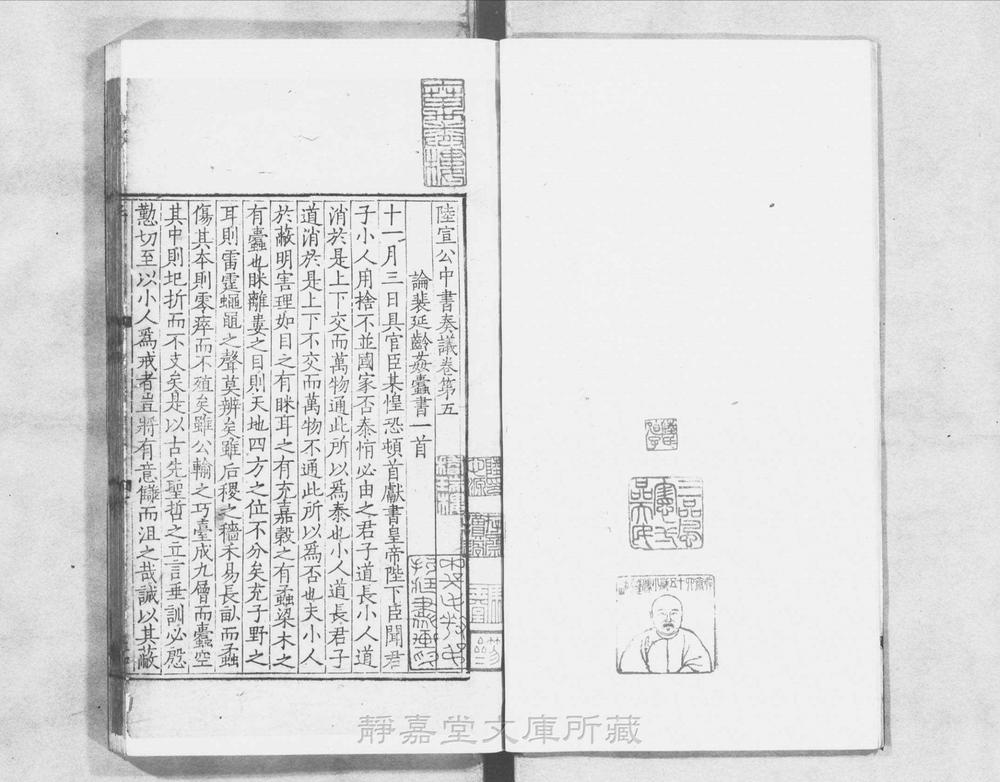 陸宣公中書奏議卷第五
論裴延齡姦蠹書一首
十一月三日具官臣某惶恐頓首獻書皇帝陛下臣聞君
子小人用捨不並國家否泰恒必由之君子道長小人道
消於是上下交而萬物通此所以爲泰也小人道長君子
道消於是上下不交而萬物不通此所以爲否也夫小人
於蔽明害理如目之有眯耳之有充嘉穀之有蟊梁木之
有蠹也眯離婁之目則天地四方之位不分矣充子野之
耳則雷霆蠅黽之聲莫辨矣雖后稷之穡禾易長畝而蟊
傷其本則零瘁而不殖矣雖公輸之巧臺成九層而蠹空
其中則圮折而不支矣是以古先聖哲之立言垂訓必慇
懃切至以小人爲戒者豈將有意讎而沮之哉誠以其蔽
靜嘉堂文庫所藏